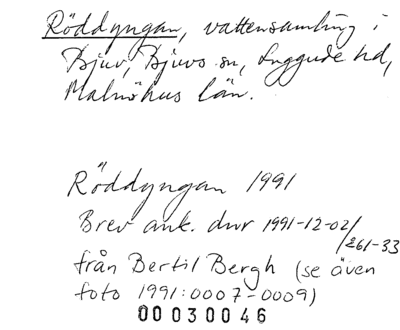 Röddyngan, vattensamling i
Bjuv, Bjuvs sn, Luggude hd,
Malmöhus län.
Röddyngan 1991
Brev ank. dnr 1991-12-02/
/261-33
från Bertil Bergh (se även
foto 1991:0007-0009)
00030046